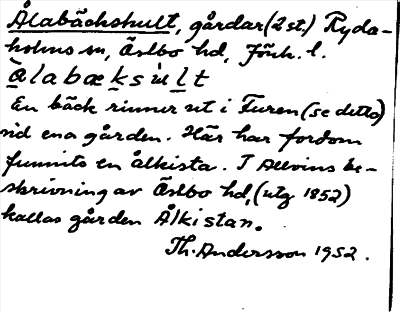 Ålabäckshult, gårdar (2 st.) Ryda-
holms sn, Östbo hd, Jönk. l.
å̀labæksu̇lt
En bäck rinner ut i Furen (se detta)
vid ena gården. Här har fordom
funnits en ålkista. I Allvins be-
skrivning av Östbo hd, (utg 1852)
kallas gården Ålkistan.
Th. Andersson 1952.